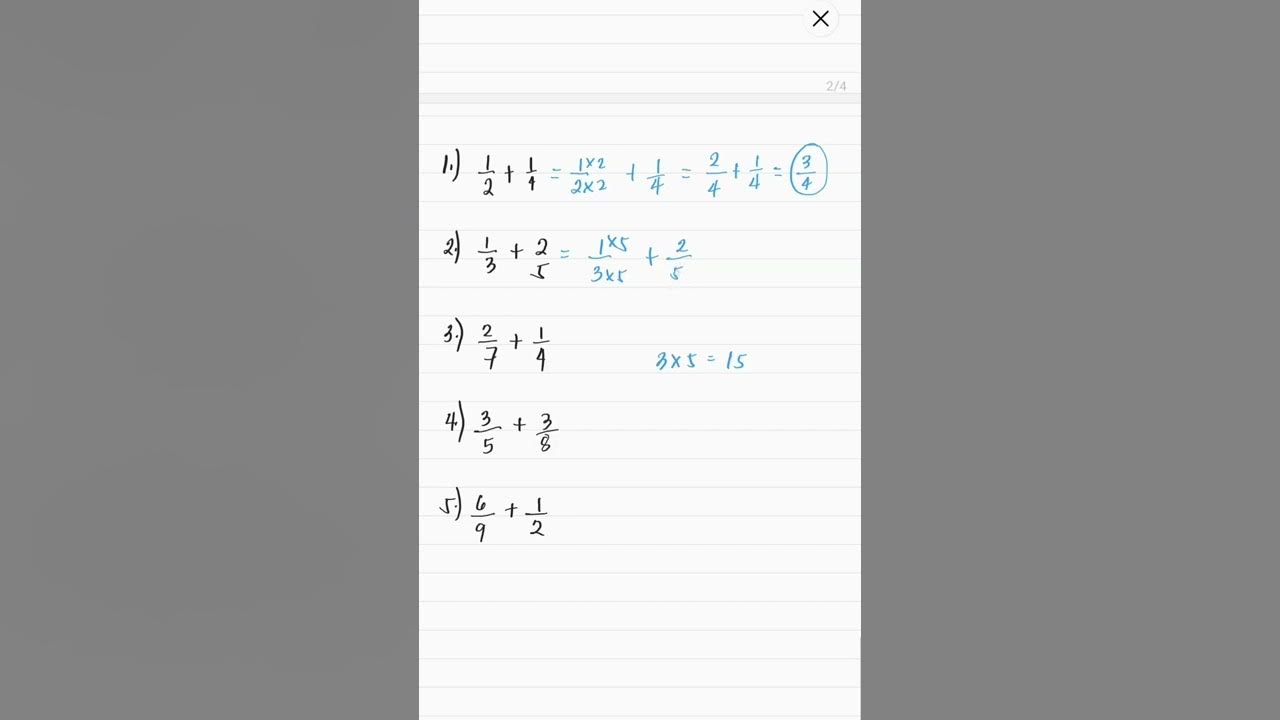 2/4
1.) 1/2 + 1/4 = 1×2/2×2 + 1/4 = 2/4 + 1/4 = 3/4
2.) 1/3 + 2/5 = 1×5/3×5 + 2/5
3.) 2/7 + 1/4
3×5 = 15
4.) 3/5 + 3/8
5.) 6/9 + 1/2